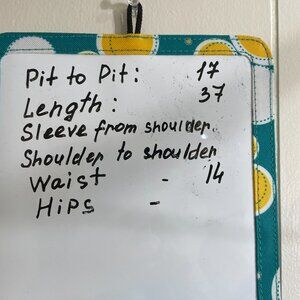 Pit to Pit: 17
Length: 37
Sleeve from shoulder
Shoulder to shoulder
Waist - 14
Hips -